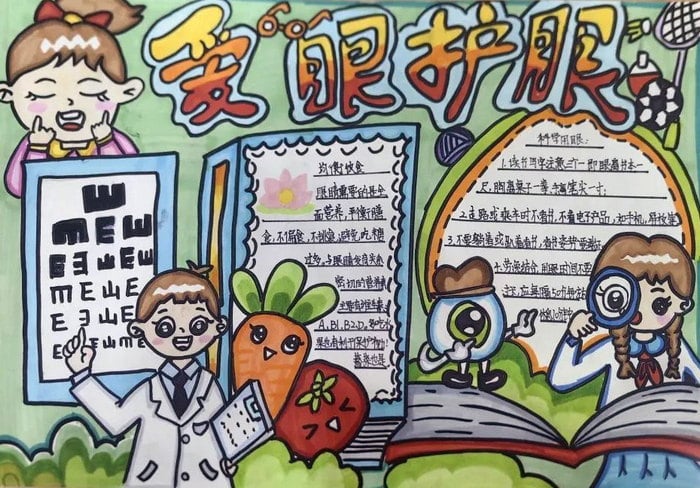 爱眼护眼
均衡饮食
眼睛需要的是全
面营养,平衡膳
食,不偏食,不挑食,避免吃糖
过多。与眼睛发育关系
密切的营养素
主要有维生素
A、B1、B2、D。多吃水
果也有利于保护视力!
蔬菜也是
科学用眼:
1.读书写字注意三个一,即眼离书本一
尺,胸离桌子一拳,手离笔尖一寸;
2.走路或乘车时不看书,不看电子产品,如手机,平板等
3.不要躺着或趴着看书,看书姿势要端正
4.劳逸结合,用眼时间不